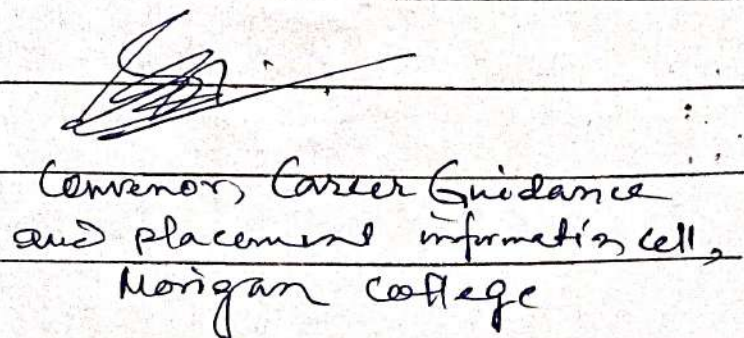 Convenor, Career Guidance
and placement information cell,
Morigaon college